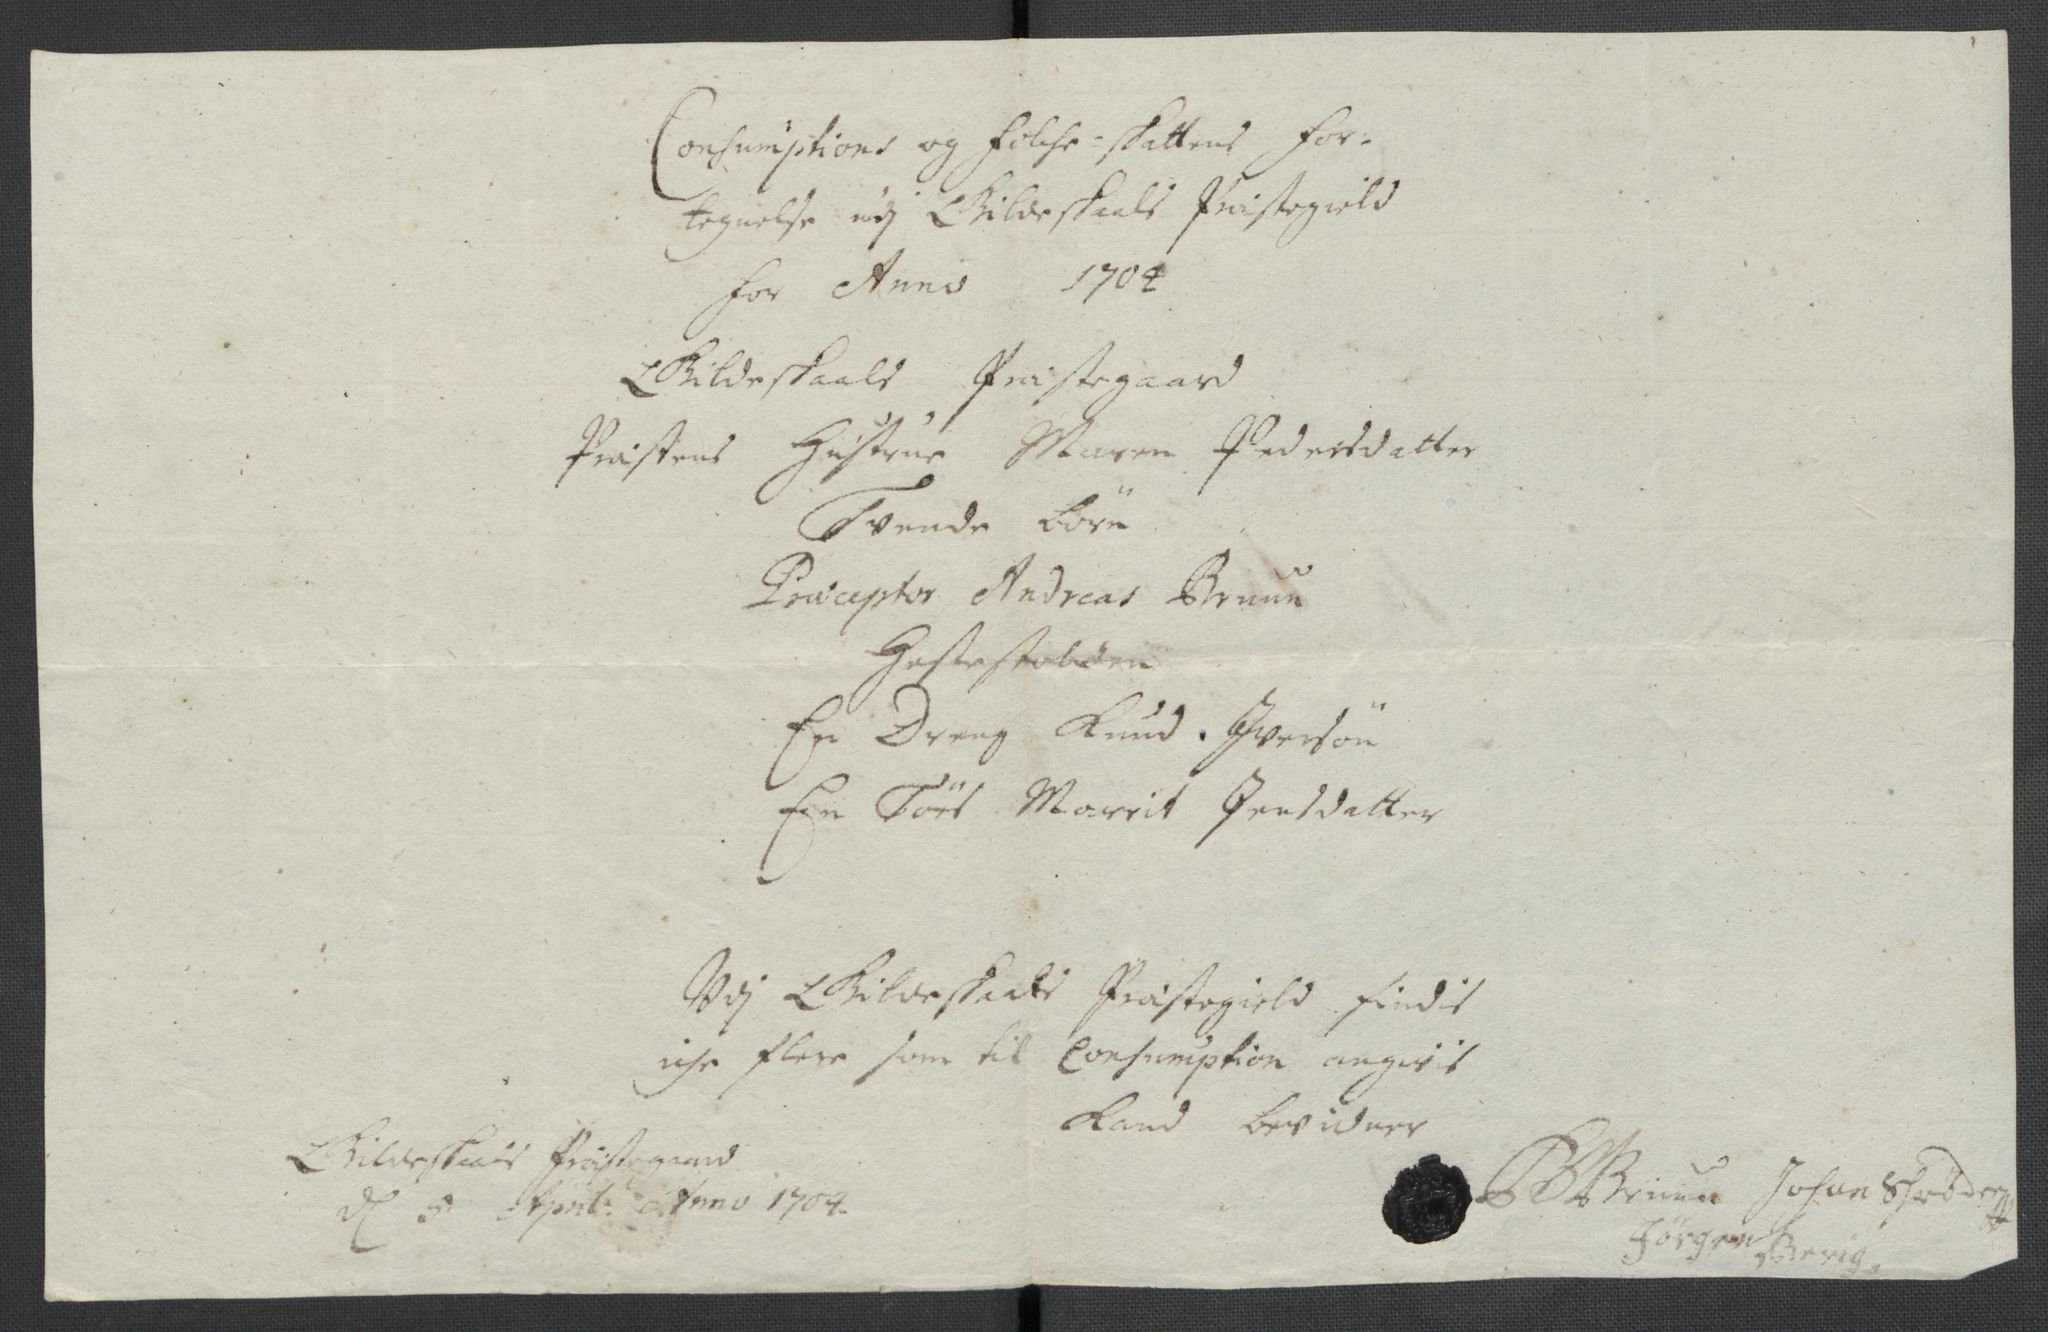 Consumptions og folche-skattens for-
tegnelse udj Gildeskaals Præstegield
for Anno 1704
Gildeskaals Præstegaard
Præstens Hustrue Maren Pedersdatter
Tvende börn
Præceptor Andreas Bruun
Hestestalden
En Dreng Knud Iversön
En Töes Marrit Jensdatter
Udj Gildeskaals Præstegield findis
iche flere som til Consumption angivis
kand bevidner
Gildeskaals Præstegaard
d 5 April: Anno 1704.
Bruun Johan Schröder
Jörgen